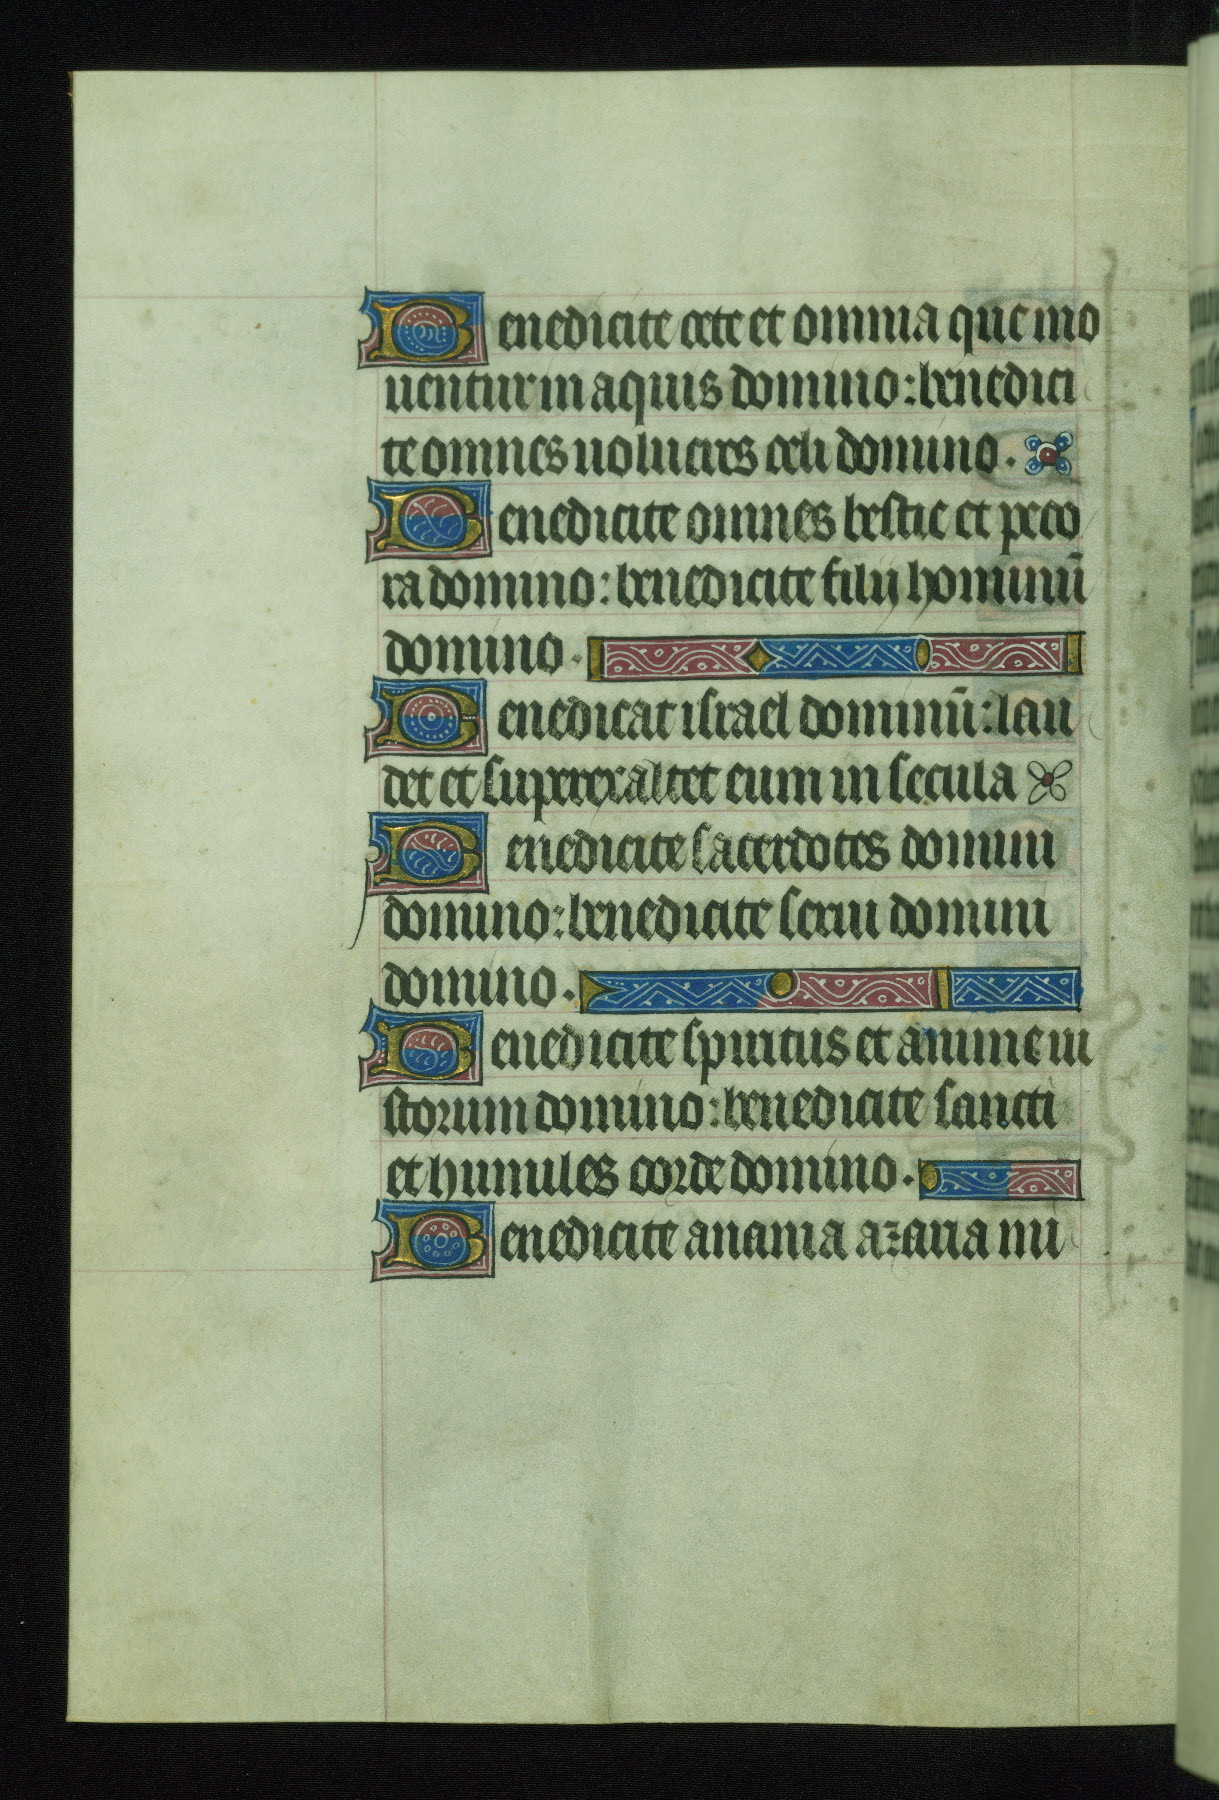 Benedicite cete et omnia que mo
uentur in aquis domino: benedici
te omnes uolucres celi domino.
Benedicite omnes bestie et peco
ra domino: benedicite filij hominū
domino.
Benedicat israel dominū: lau
det et superexaltet eum in secula
Benedicite sacerdotes domini
domino: benedicite serui domini
domino.
Benedicite spiritus et anime iu
storum domino: benedicite sancti
et humiles corde domino.
Benedicite anania azaria mi